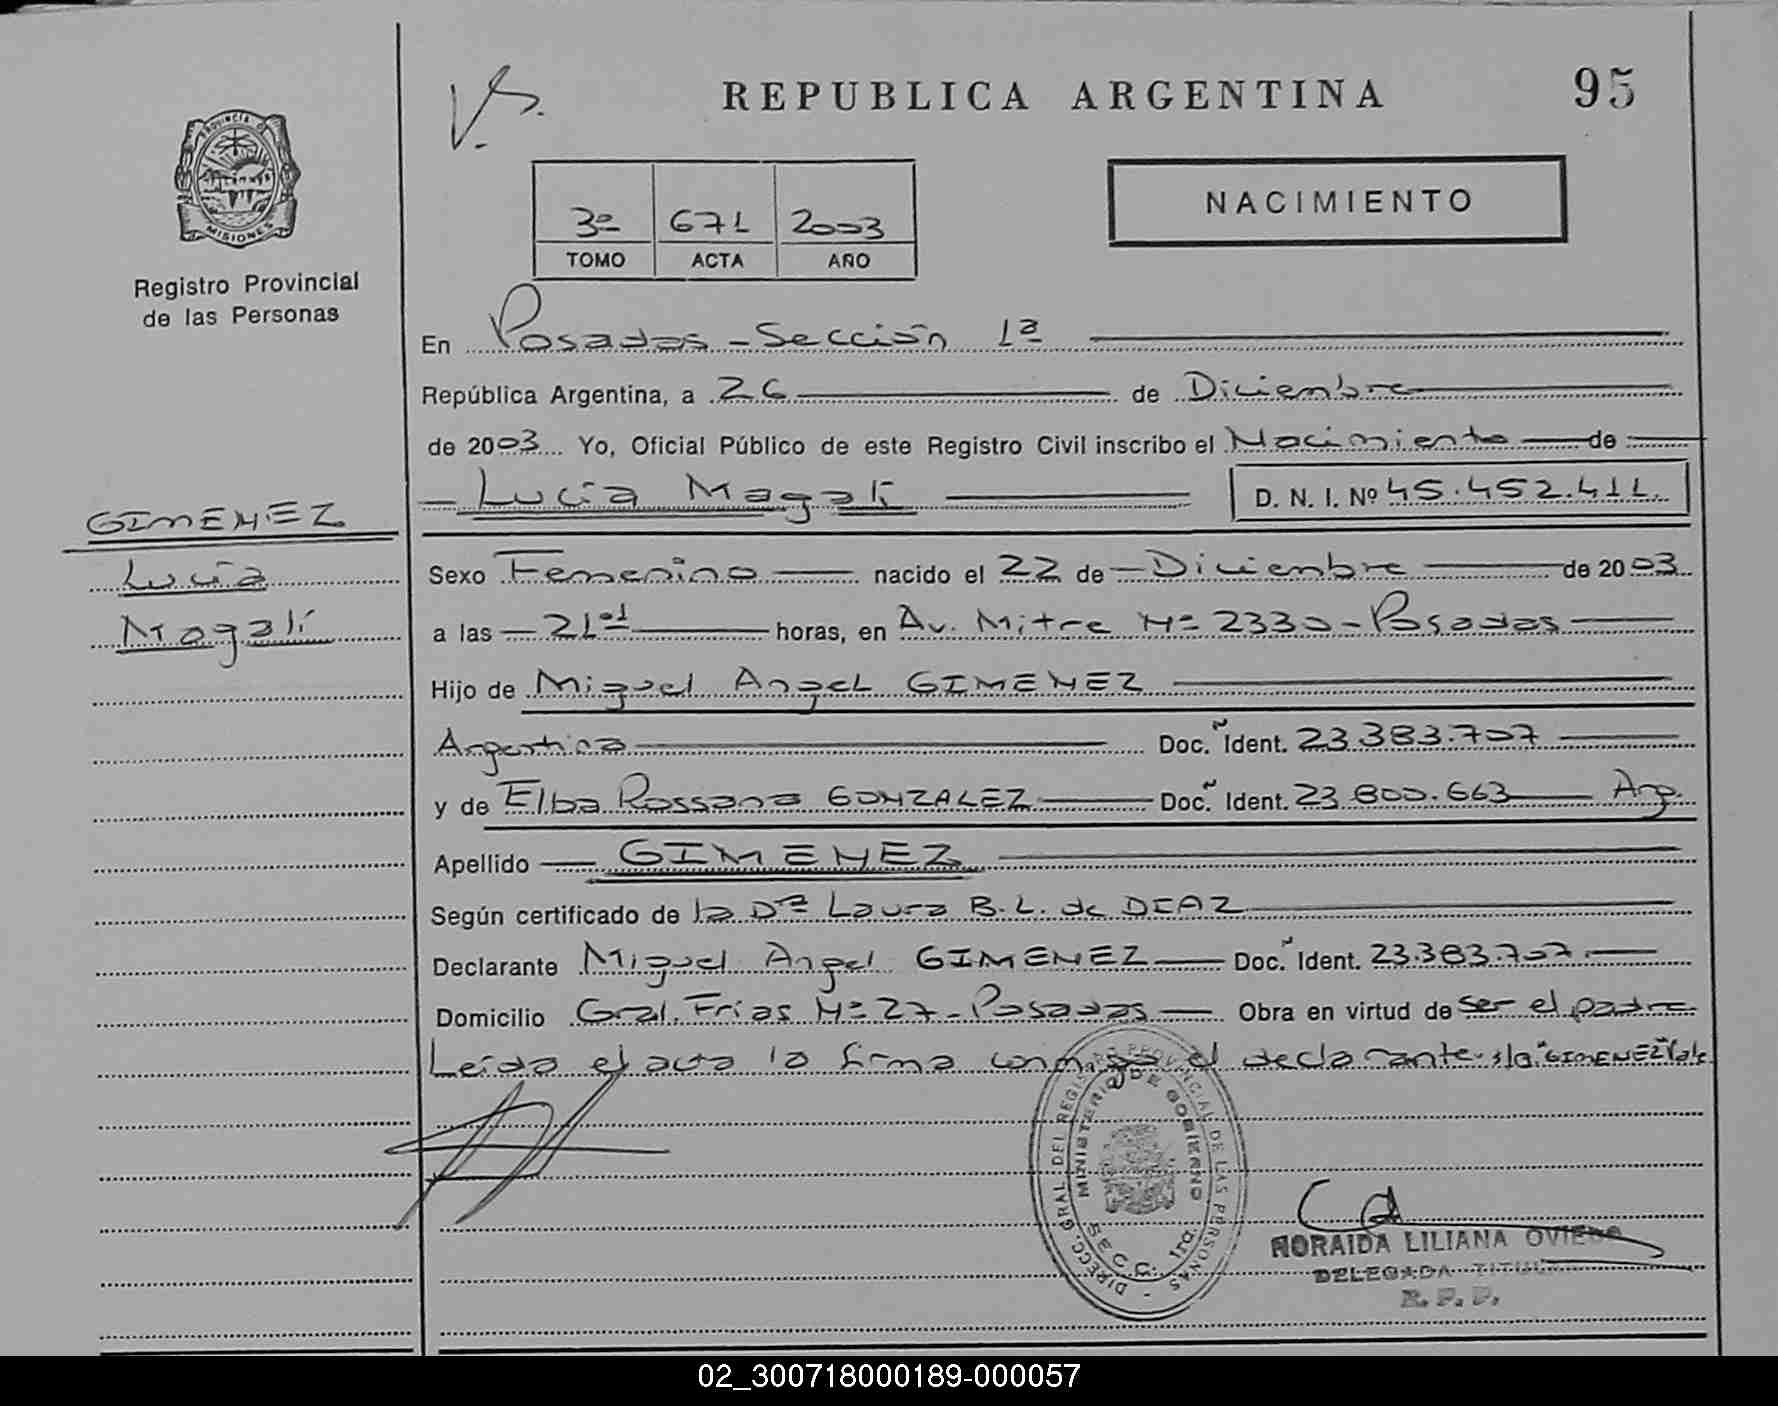 REPUBLICA ARGENTINA
95
PROVINCIA DE
MISIONES
Registro Provincial
de las Personas
3º 671 2003
TOMO ACTA AÑO
NACIMIENTO
En Posadas - Sección 1ª
República Argentina, a 26 de Diciembre
de 2003 Yo, Oficial Público de este Registro Civil inscribo el Nacimiento de
Lucía Magalí D. N. I. Nº 45.452.411
GIMENEZ
Lucía
Magalí
Sexo Femenino nacido el 22 de Diciembre de 2003
a las 21 horas, en Av. Mitre Nº 2330 - Posadas
Hijo de Miguel Angel GIMENEZ
Argentina Doc. Ident. 23.383.707
y de Elba Rossana GONZALEZ Doc. Ident. 23.800.663 Arg.
Apellido GIMENEZ
Según certificado de la Dª Laura B. L. de DIAZ
Declarante Miguel Angel GIMENEZ Doc. Ident. 23.383.707
Domicilio Gral. Frías Nº 27 - Posadas Obra en virtud de ser el padre
Leída el acta la firma conmigo el declarante. s/a "GIMENEZ" Vale
DIRECC. GRAL. DEL REGISTRO PROVINCIAL DE LAS PERSONAS
MINISTERIO DE GOBIERNO
SECC. 1ra.
NORAIDA LILIANA OVIEDO
DELEGADA TITULAR
R. P. P.
02_300718000189-000057